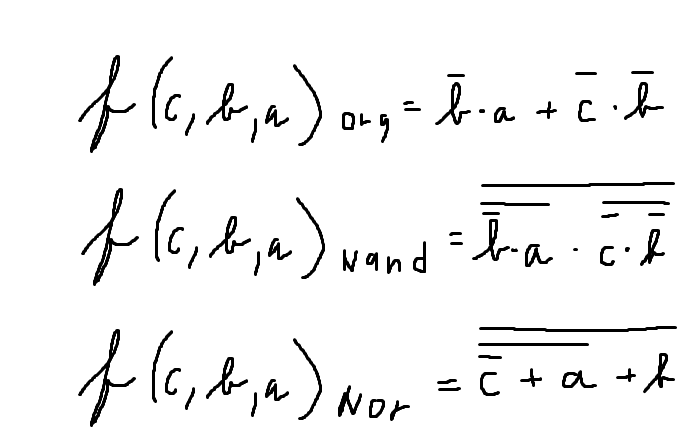 $f(c, b, a)_{Org} = \bar{b} \cdot a + \bar{c} \cdot \bar{b}$
$f(c, b, a)_{Nand} = \overline{\overline{\bar{b} \cdot a} \cdot \overline{\bar{c} \cdot \bar{b}}}$
$f(c, b, a)_{Nor} = \overline{\overline{\bar{c} + a} + b}$